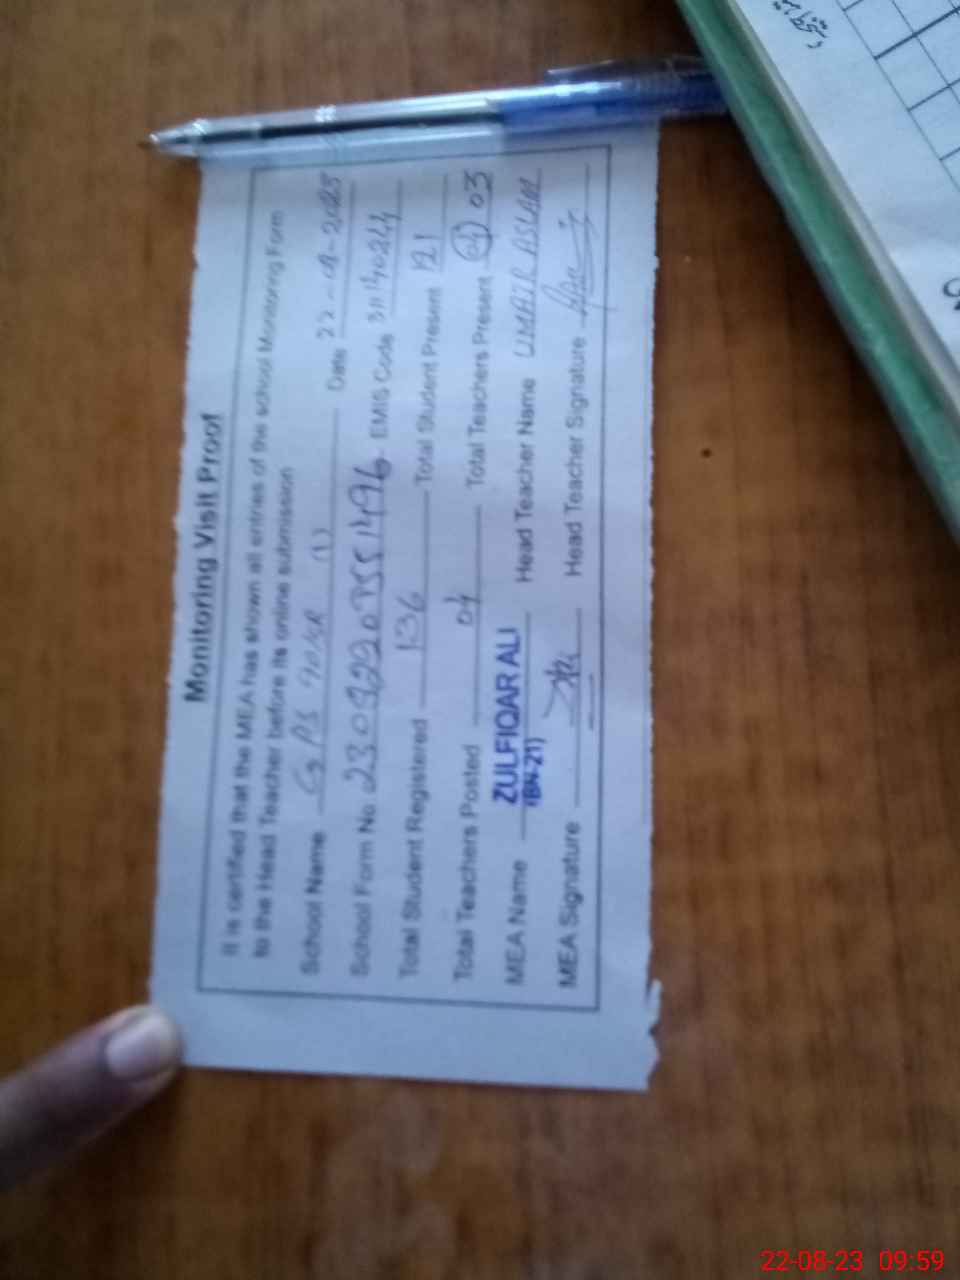 Monitoring Visit Proof
It is certified that the MEA has shown all entries of the school Monitoring Form
to the Head Teacher before its online submission
School Name G PS (1) Date
School Form No EMIS Code
Total Student Registered 136 Total Student Present 121
Total Teachers Posted 04 Total Teachers Present 04 03
MEA Name ZULFIQAR ALI Head Teacher Name UMAIR ASLAM
(BN-21)
MEA Signature Head Teacher Signature
22-08-23 09:59